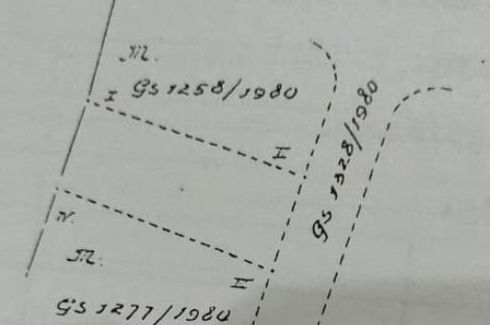 M.
GS 1258/1980
I
II
GS 1328/1980
IV.
M.
III
GS 1277/1980